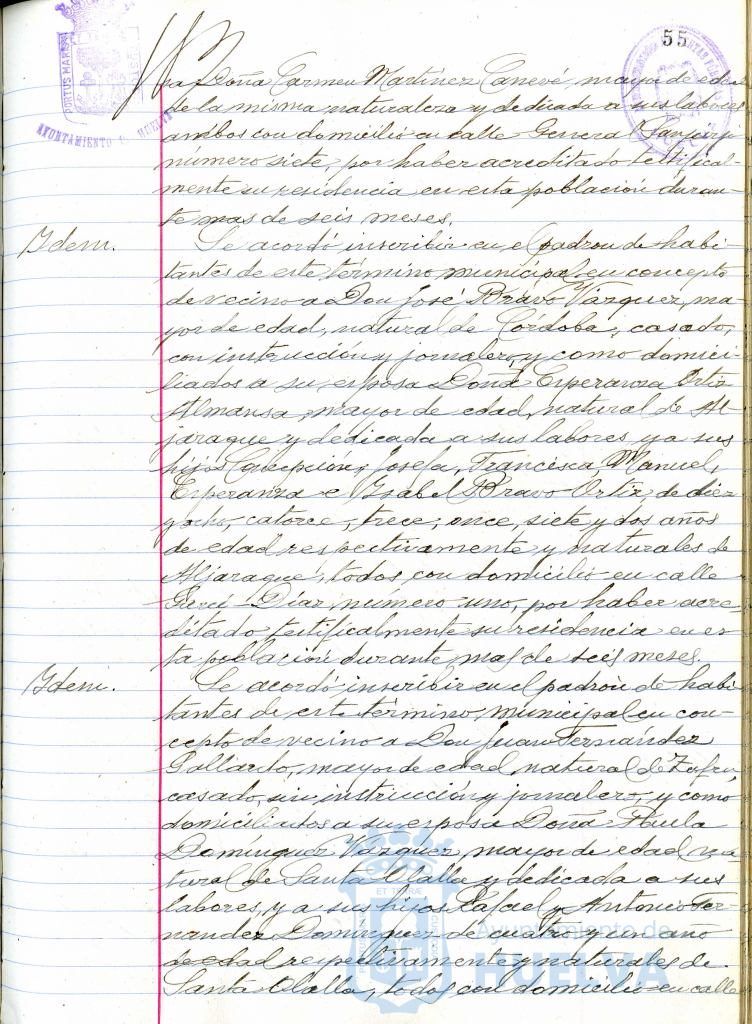 55
PORTUS MARIS
AYUNTAMIENTO HUELVA
ra Doña Carmen Martínez Canevé, mayor de edad
de la misma naturaleza y dedicada a sus labores,
ambos con domicilio en calle General Sanjurjo
número siete, por haber acreditado testifical-
mente su residencia en esta población duran-
te mas de seis meses.
Idem.
Se acordó inscribir en el padrón de habi-
tantes de este término municipal en concepto
de vecino a Don José Bravo Vázquez, ma-
yor de edad, natural de Córdoba, casado,
con instrucción y jornalero, y como domici-
liados a su esposa Doña Esperanza Ortiz
Almansa, mayor de edad, natural de Al-
jaraque y dedicada a sus labores y a sus
hijos Concepción, Josefa, Francisca, Manuel,
Esperanza e Isabel Bravo Ortiz, de diez
y ocho, catorce, trece, once, siete y dos años
de edad respectivamente y naturales de
Aljaraque, todos con domicilio en calle
Díaz, número uno, por haber acre-
ditado testificalmente su residencia en es-
ta población durante mas de seis meses.
Idem.
Se acordó inscribir en el padrón de habi-
tantes de este término municipal en con-
cepto de vecino a Don Juan Fernández
Gallardo, mayor de edad, natural de Zafra,
casado, sin instrucción y jornalero, y como
domiciliados a su esposa Doña
Domínguez Vázquez, mayor de edad, na-
tural de Santa Olalla y dedicada a sus
labores, y a sus hijos Rafael y Antonio Fer-
nandez Domínguez, de cuatro y un año
de edad respectivamente y naturales de
Santa Olalla, todos con domicilio en calle
Ayuntamiento de
HUELVA